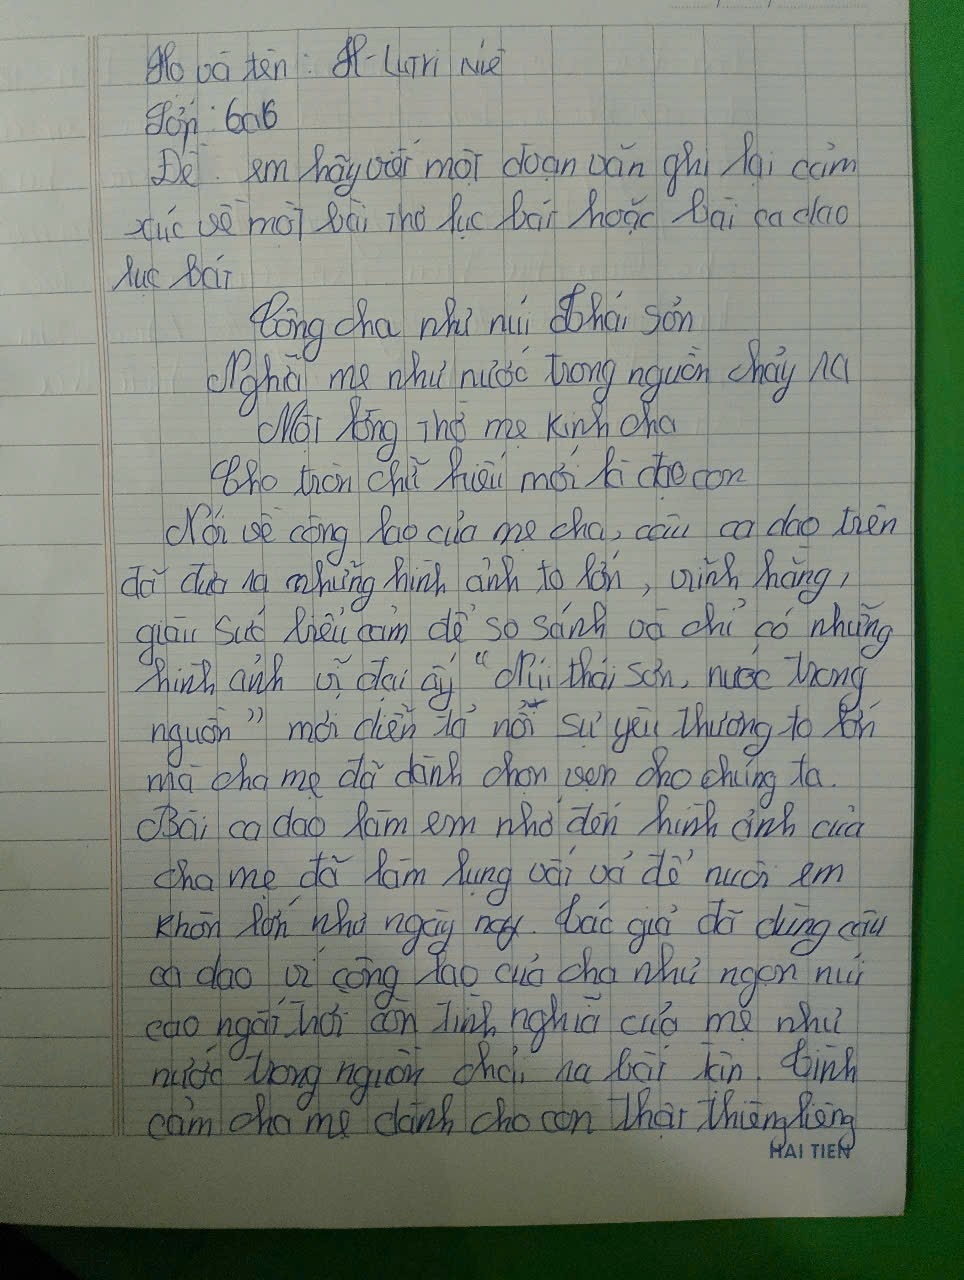 Họ và tên : H-Lưri Niê
Lớp : 6a6
Đề : em hãy viết một đoạn văn ghi lại cảm
xúc về một bài thơ lục bát hoặc bài ca dao
lục bát
Công cha như núi Thái Sơn
Nghĩa mẹ như nước trong nguồn chảy ra
Một lòng thờ mẹ kính cha
Cho tròn chữ hiếu mới là đạo con
Nói về công lao của mẹ cha, câu ca dao trên
đã đưa ra những hình ảnh to lớn, vĩnh hằng,
giàu sức biểu cảm để so sánh và chỉ có những
hình ảnh vĩ đại ấy "Núi thái sơn, nước trong
nguồn" mới diễn tả nổi sự yêu thương to lớn
mà cha mẹ đã dành chọn vẹn cho chúng ta.
Bài ca dao làm em nhớ đến hình ảnh của
cha mẹ đã làm lụng vất vả để nuôi em
khôn lớn như ngày nay. Tác giả đã dùng câu
ca dao ví công lao của cha như ngọn núi
cao ngất trời còn tình nghĩa của mẹ như
nước trong nguồn chải ra bất tận. Tình
cảm cha mẹ dành cho con thật thiêng liêng
HAI TIEN